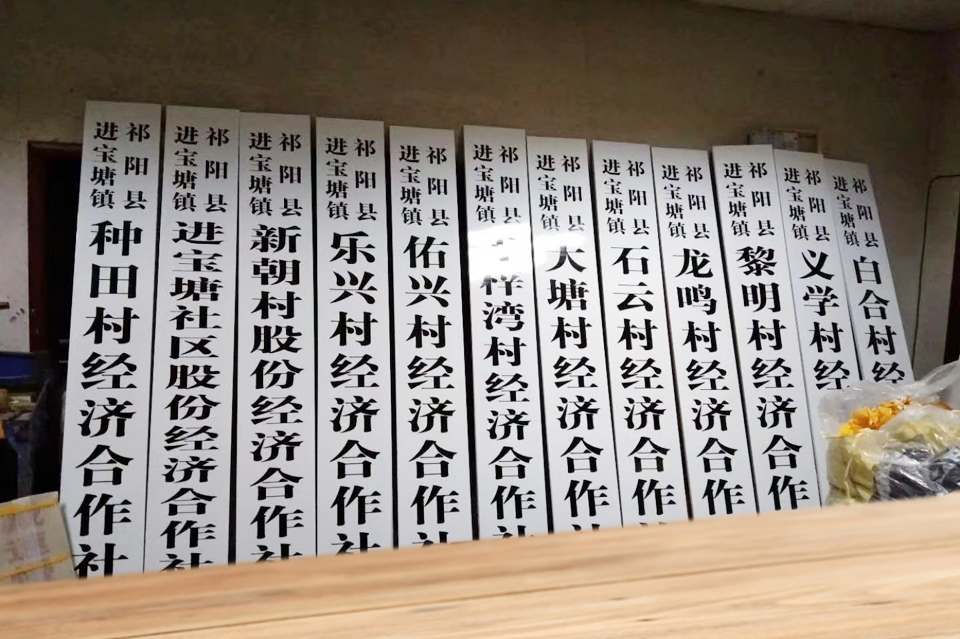 祁阳县
进宝塘镇
种田村经济合作社
祁阳县
进宝塘镇
进宝塘社区股份经济合作社
祁阳县
进宝塘镇
新朝村股份经济合作社
祁阳县
进宝塘镇
乐兴村经济合作社
祁阳县
进宝塘镇
佑兴村经济合作社
祁阳县
进宝塘镇
梓湾村经济合作社
祁阳县
进宝塘镇
大塘村经济合作社
祁阳县
进宝塘镇
石云村经济合作社
祁阳县
进宝塘镇
龙鸣村经济合作
祁阳县
进宝塘镇
黎明村经济合作
祁阳县
进宝塘镇
义学村经
祁阳县
进宝塘镇
白合村经